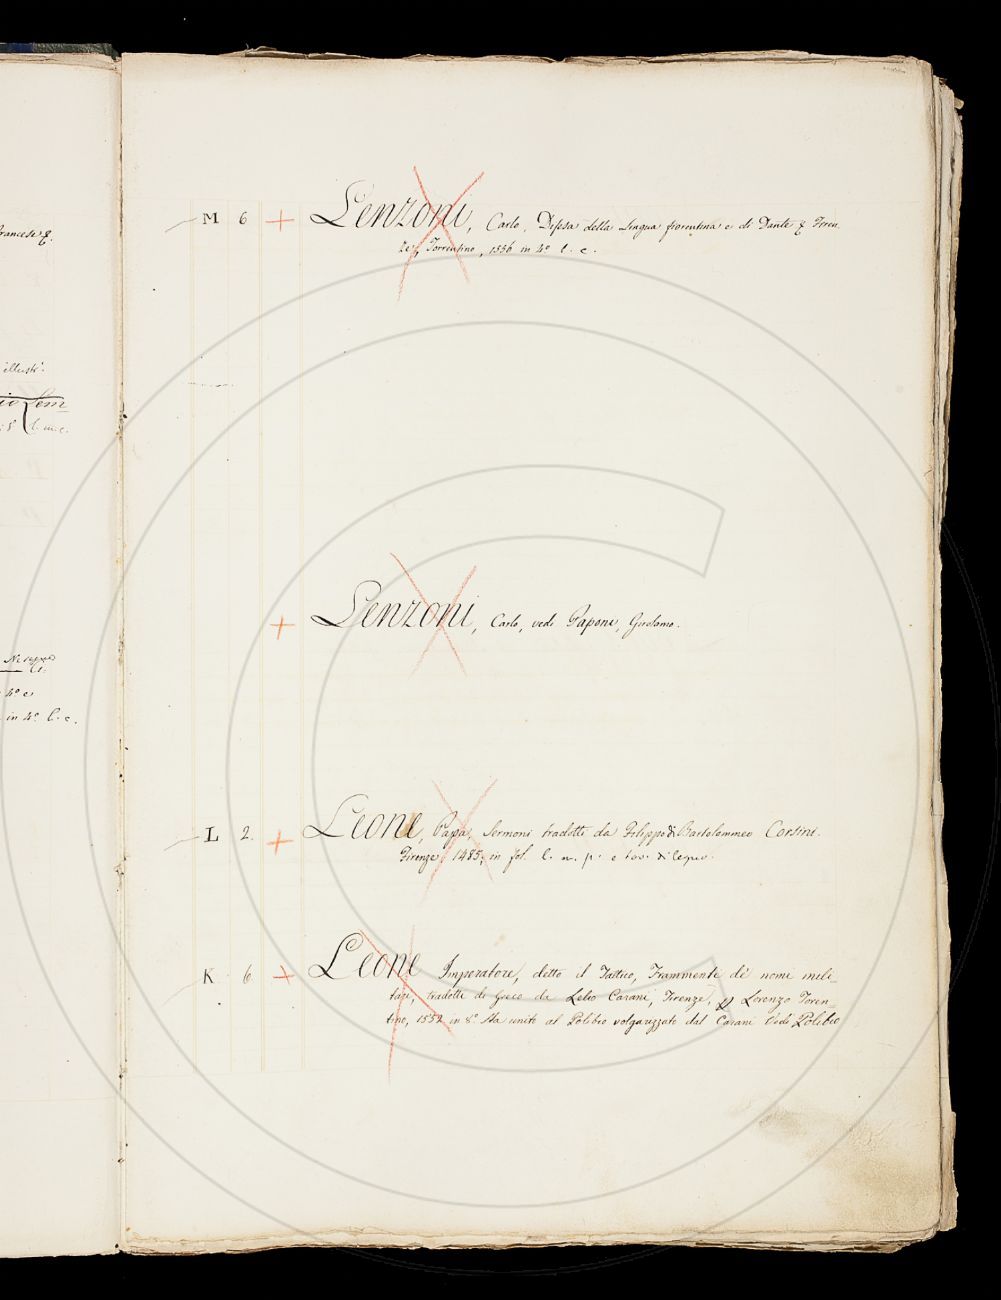 Francesc
illustr.
Lem
l. m. c.
4º e
in 4º. l. c.
M 6 + Lenzoni, Carlo, Difesa della Lingua fiorentina e di Dante Firen
ze, Torrentino, 1556 in 4º l. c.
+ Lenzoni, Carlo, vedi Paponi, Girolamo.
L 2. + Leone, Papa, Sermoni tradotti da Filippo di Bartolommeo Corsini.
Firenze 1485, in fol. l. n. p. e tav. di legno.
K 6 + Leone Imperatore, detto il Tattico, Frammenti de' nomi mili-
tari, tradotti di Greco da Lelio Carani, Firenze, Lorenzo Toren-
tino, 1552 in 8º. Sta unito al Polibio volgarizzato dal Carani Vedi Polibio